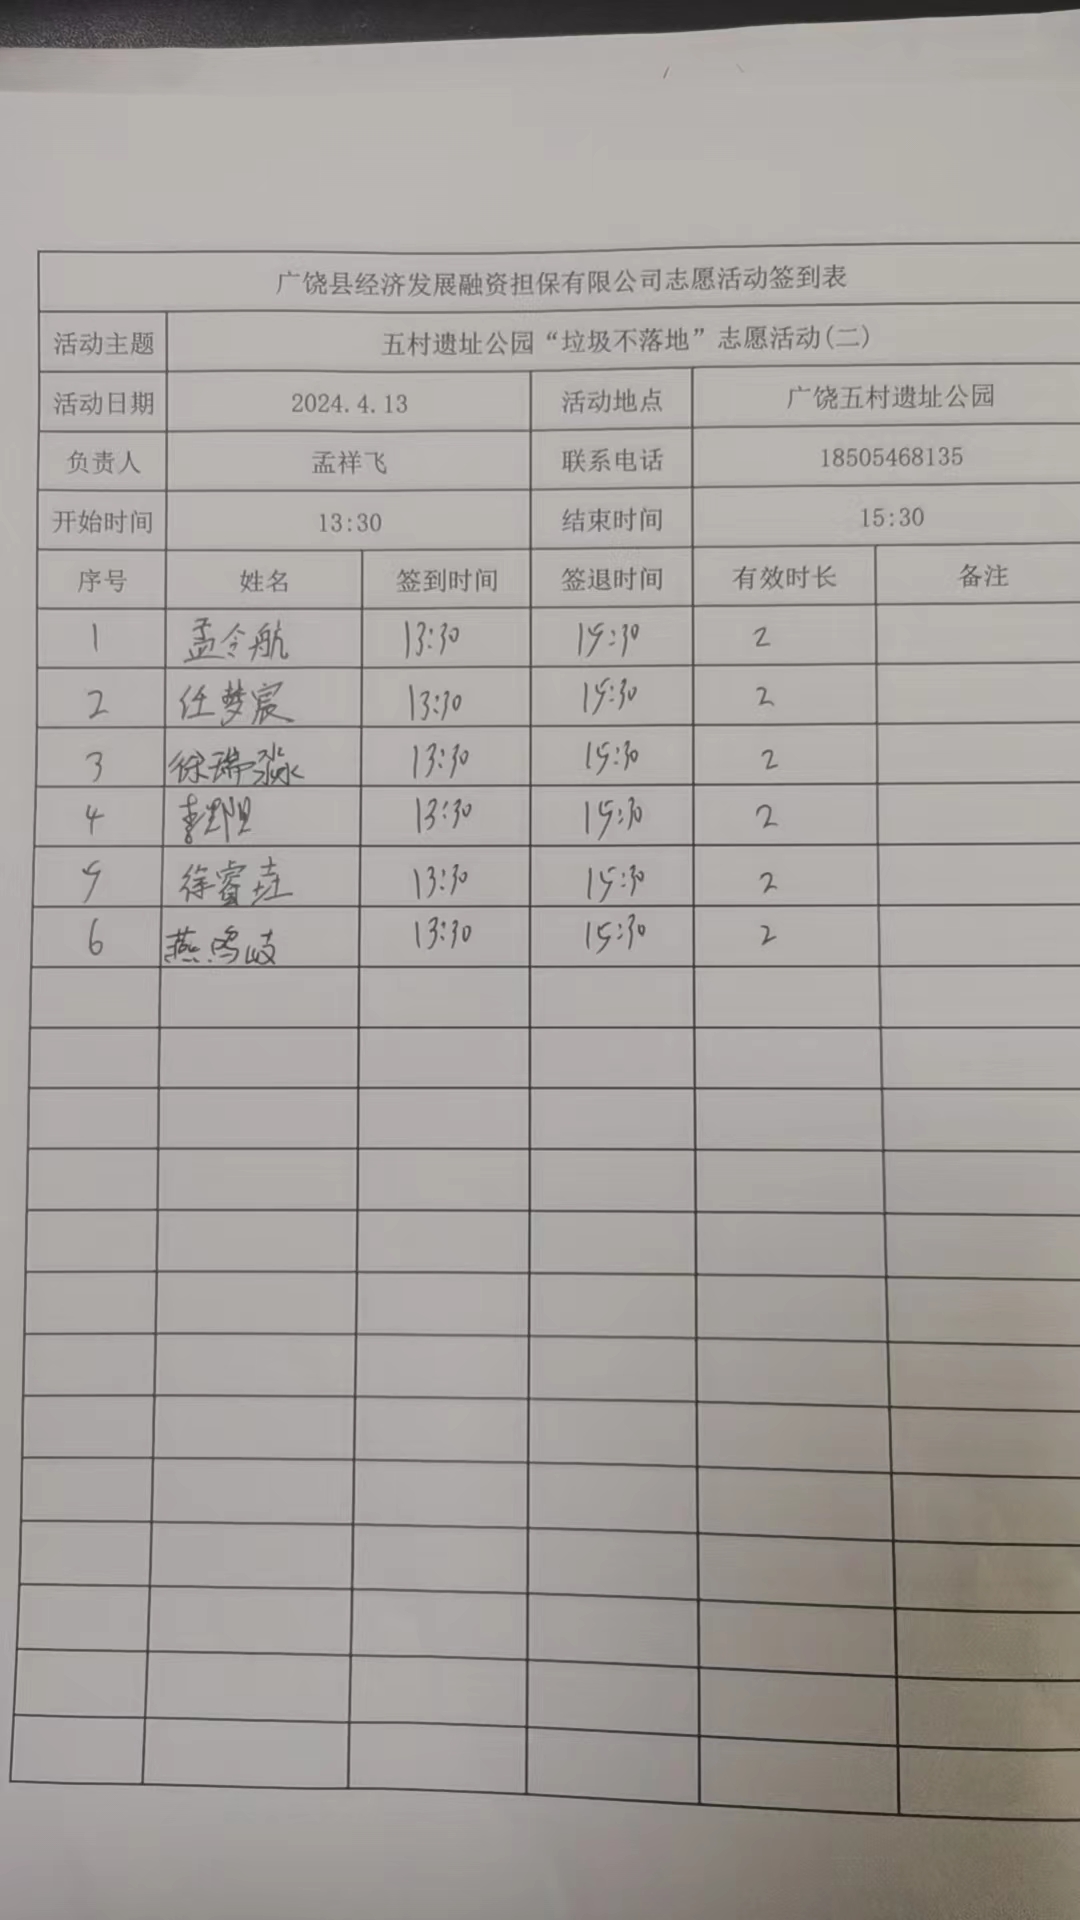 广饶县经济发展融资担保有限公司志愿活动签到表
活动主题 五村遗址公园“垃圾不落地”志愿活动(二)
活动日期 2024.4.13 活动地点 广饶五村遗址公园
负责人 孟祥飞 联系电话 18505468135
开始时间 13:30 结束时间 15:30
序号 姓名 签到时间 签退时间 有效时长 备注
1 孟令航 13:30 15:30 2
2 任梦宸 13:30 15:30 2
3 徐瑞淼 13:30 15:30 2
4 13:30 15:30 2
5 徐睿垚 13:30 15:30 2
6 燕鸣岐 13:30 15:30 2